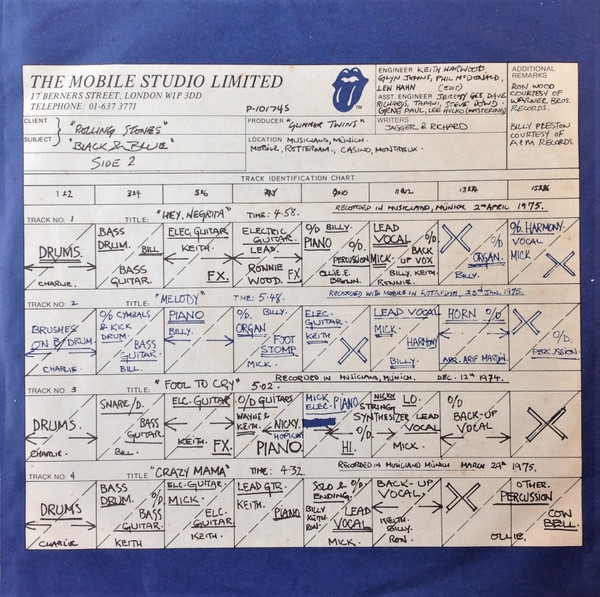 THE MOBILE STUDIO LIMITED
17 BERNERS STREET, LONDON W1P 3DD
TELEPHONE: 01-637 3771
P-10174S
TM
ENGINEER KEITH HARWOOD,
GLYN JOHNS, PHIL McDONALD,
LEW HAHN (ZUC)
ASST. ENGINEER JEREMY GEE, DAVE
RICHARDS, TAPANI, STEVE DOWD
GENE PAUL, LEE HULKO (MASTERING)
ADDITIONAL
REMARKS
RON WOOD
COURTESY OF
WARNER BROS.
RECORDS.
BILLY PRESTON
COURTESY OF
A&M RECORDS.
CLIENT "ROLLING STONES"
SUBJECT "BLACK & BLUE"
SIDE 2
PRODUCER "GLIMMER TWINS"
WRITERS
JAGGER & RICHARD
LOCATION MUSICLAND, MÜNICH.
MOBILE, ROTTERDAM, CASINO, MONTREUX.
TRACK IDENTIFICATION CHART
1&2 3&4 5&6 7&8 9&10 11&12 13&14 15&16
TRACK NO: 1 TITLE: "HEY, NEGRITA" TIME: 4.58. RECORDED IN MUSICLAND, MÜNICH 2nd APRIL 1975.
DRUMS.
CHARLIE.
BASS
DRUM.
BILL
BASS
GUITAR.
ELEC. GUITAR
KEITH.
FX.
ELECTRIC
GUITAR.
LEAD.
RONNIE
WOOD.
FX
O/D BILLY.
PIANO
O/D
PERCUSSION
OLLIE E.
BROWN.
LEAD
VOCAL
MICK.
O/D
BACK
UP VOX
BILLY. KEITH.
RONNIE.
O/D
ORGAN.
BILLY.
O/D HARMONY.
VOCAL
MICK
TRACK NO: 2 TITLE: "MELODY" TIME: 5.48. RECORDED WITH MOBILE IN ROTTERDAM, 23rd JAN. 1975.
BRUSHES
ON B/DRUM
CHARLIE.
O/D CYMBALS
& KICK
DRUM.
BASS
GUITAR.
BILL.
PIANO
BILLY.
O/D. BILLY.
ORGAN
FOOT
STOMP
MICK.
ELEC.
GUITAR.
KEITH
LEAD VOCAL
MICK.
HARMONY
BILLY.
HORN O/D
ARR. ARIF MARDIN.
O/D.
PERCUSSION.
TRACK NO: 3 TITLE: "FOOL TO CRY" 5.02. RECORDED IN MUSICLAND, MÜNICH. DEC. 12th 1974.
DRUMS.
CHARLIE.
SNARE/D.
BASS
GUITAR.
BILL.
ELC. GUITAR
KEITH.
FX.
O/D GUITARS
WAYNE &
KEITH.
NICKY
HOPKINS
PIANO.
MICK
ELEC. PIANO
HI.
NICKY
STRINGS
SYNTHESIZER
O/D.
LO.
LEAD
VOCAL
MICK.
O/D
BACK-UP
VOCAL
TRACK NO: 4 TITLE: "CRAZY MAMA" TIME: 4.32. RECORDED IN MUSICLAND MÜNICH MARCH 29th 1975.
DRUMS
CHARLIE
BASS
DRUM.
O/D.
BASS
GUITAR.
KEITH
ELEC. GUITAR.
MICK.
ELC.
GUITAR.
KEITH.
LEAD GTR.
KEITH.
PIANO
SOLO & O/D
ENDING.
BILLY
KEITH.
RON.
LEAD
VOCAL
MICK.
BACK-UP
VOCAL.
KEITH.
BILLY.
RON.
OTHER.
PERCUSSION
COW
BELL.
OLLIE.